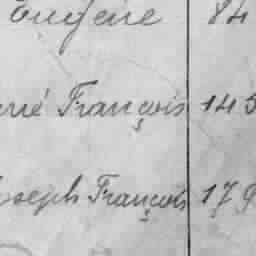 Eugène 84
François 145
Joseph François 179